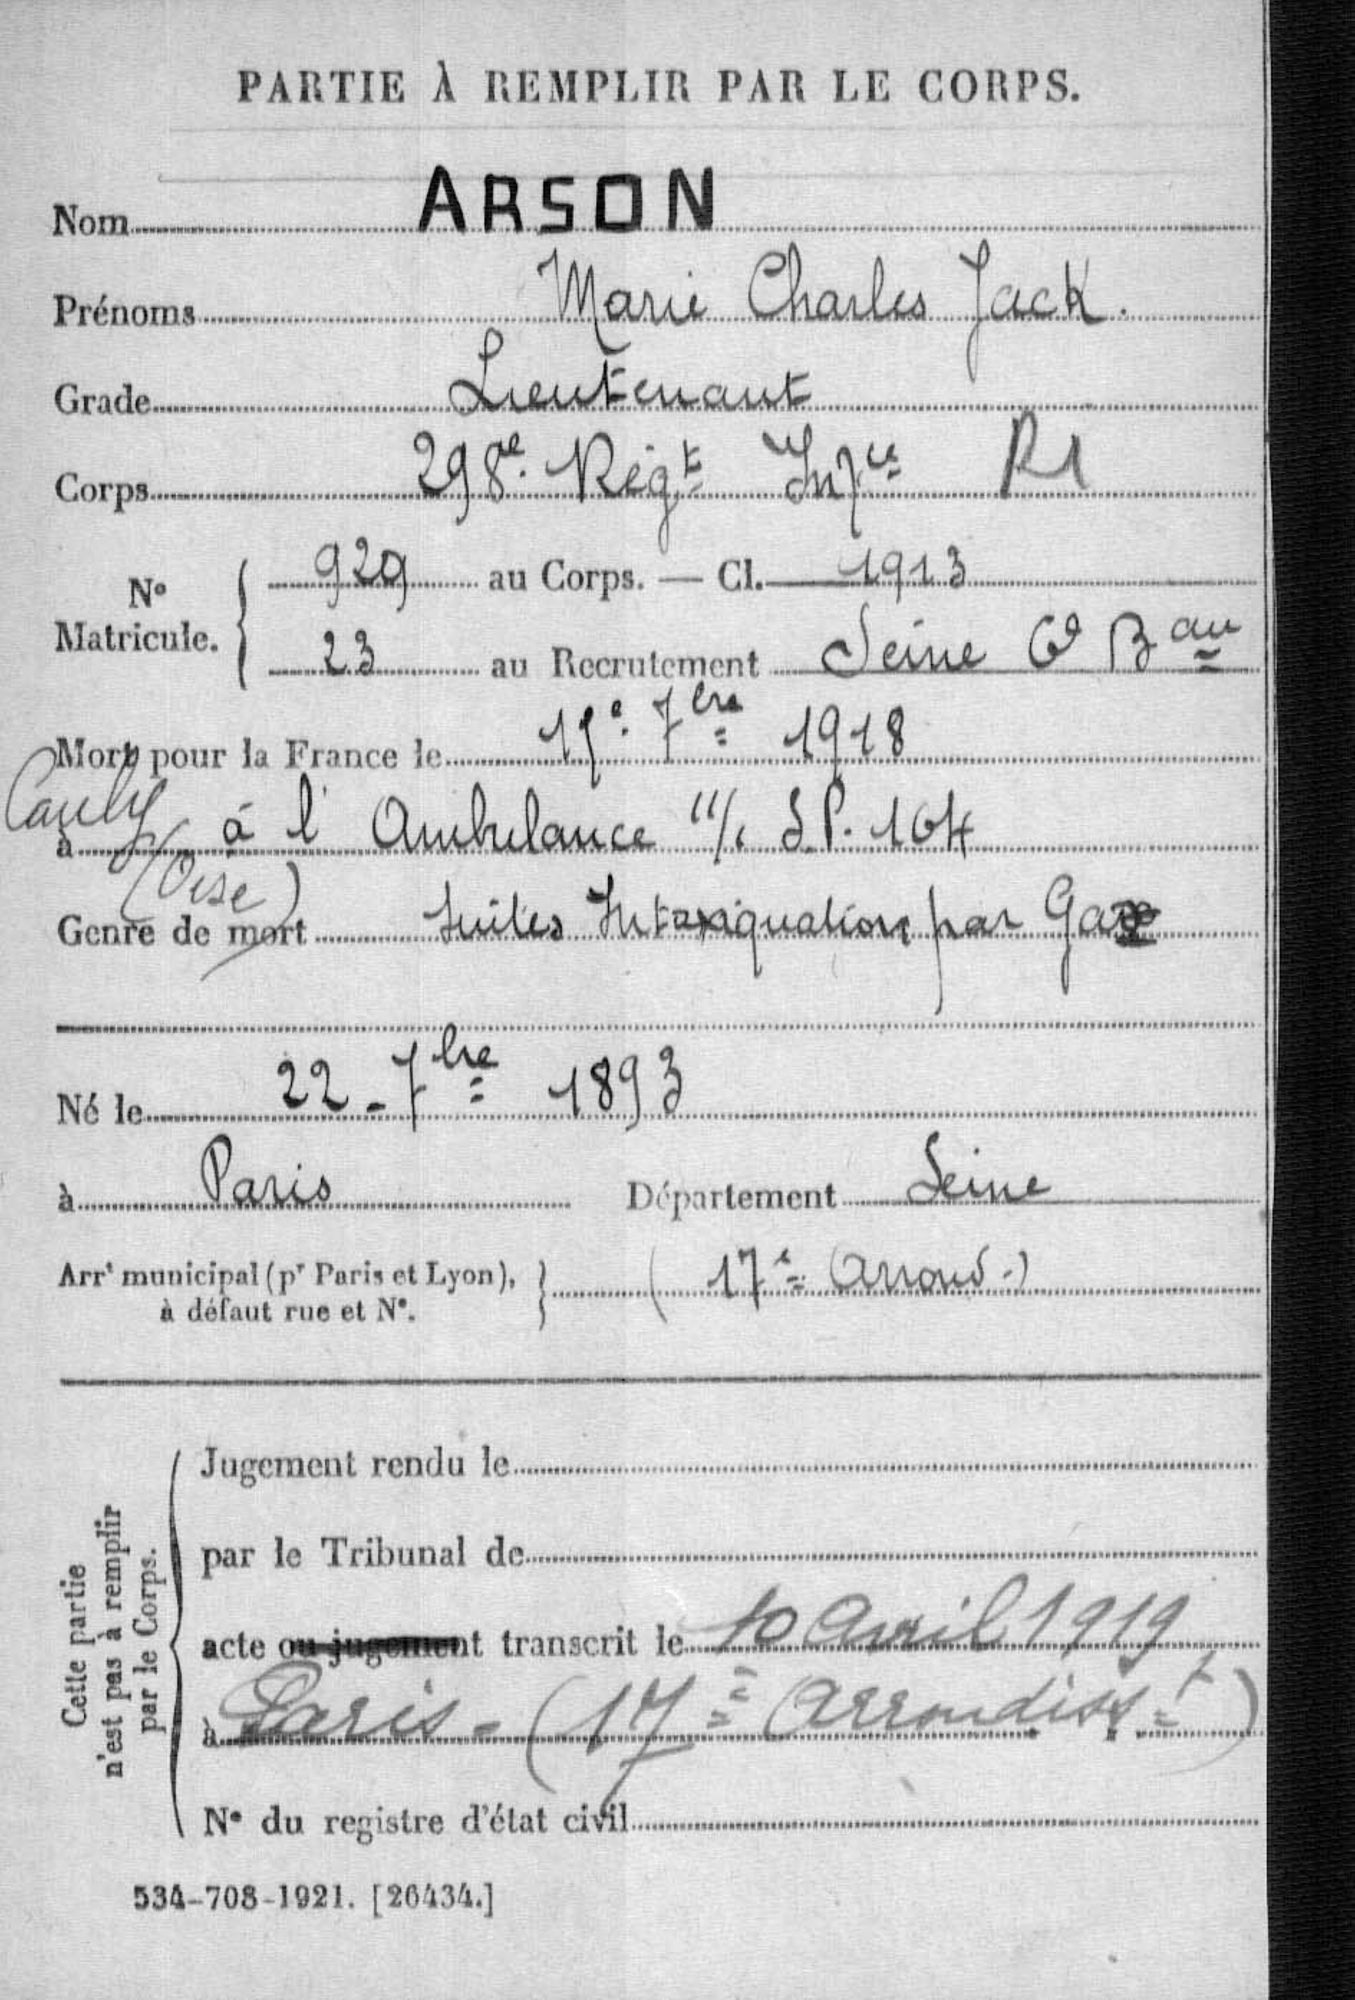 PARTIE À REMPLIR PAR LE CORPS.
Nom ARSON
Prénoms Marie Charles Jack.
Grade Lieutenant
Corps 298e. Régt Infie R1
No Matricule. 929 au Corps. — Cl. 1913
23 au Recrutement Seine 6e Bau
Mort pour la France le 7bre 1918
à à l'Ambulance 11/1 S.P. 164
(Oise)
Genre de mort Suites Intoxiquation par Gaz
Né le 22 - 7bre 1893
à Paris Département Seine
Arrt municipal (pr Paris et Lyon), à défaut rue et No. (17e Arrond.)
Cette partie n'est pas à remplir par le Corps.
Jugement rendu le
par le Tribunal de
acte ou jugement transcrit le 10 avril 1919
à Paris - (17e arrondisst)
No du registre d'état civil
534-708-1921. [26434.]